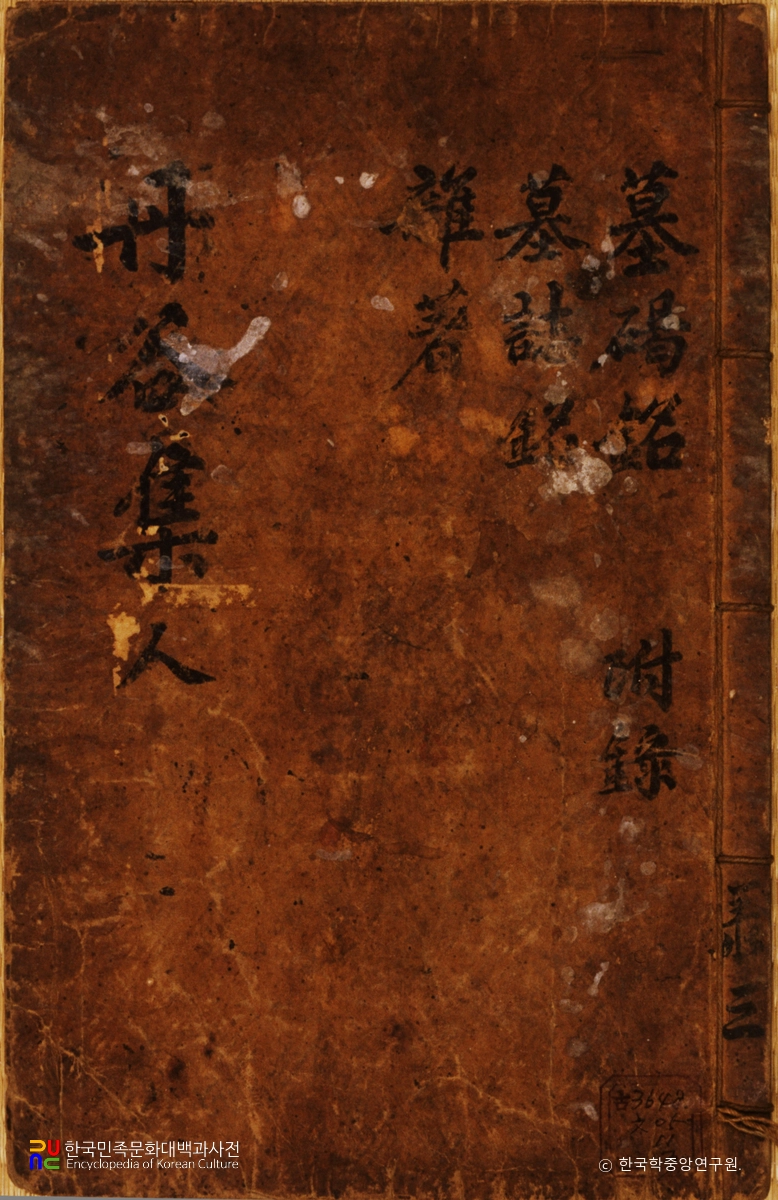 墓碣銘 附錄
墓誌銘
雜著
丹谷集 人
共三
古3648
한국민족문화대백과사전
Encyclopedia of Korean Culture
© 한국학중앙연구원.